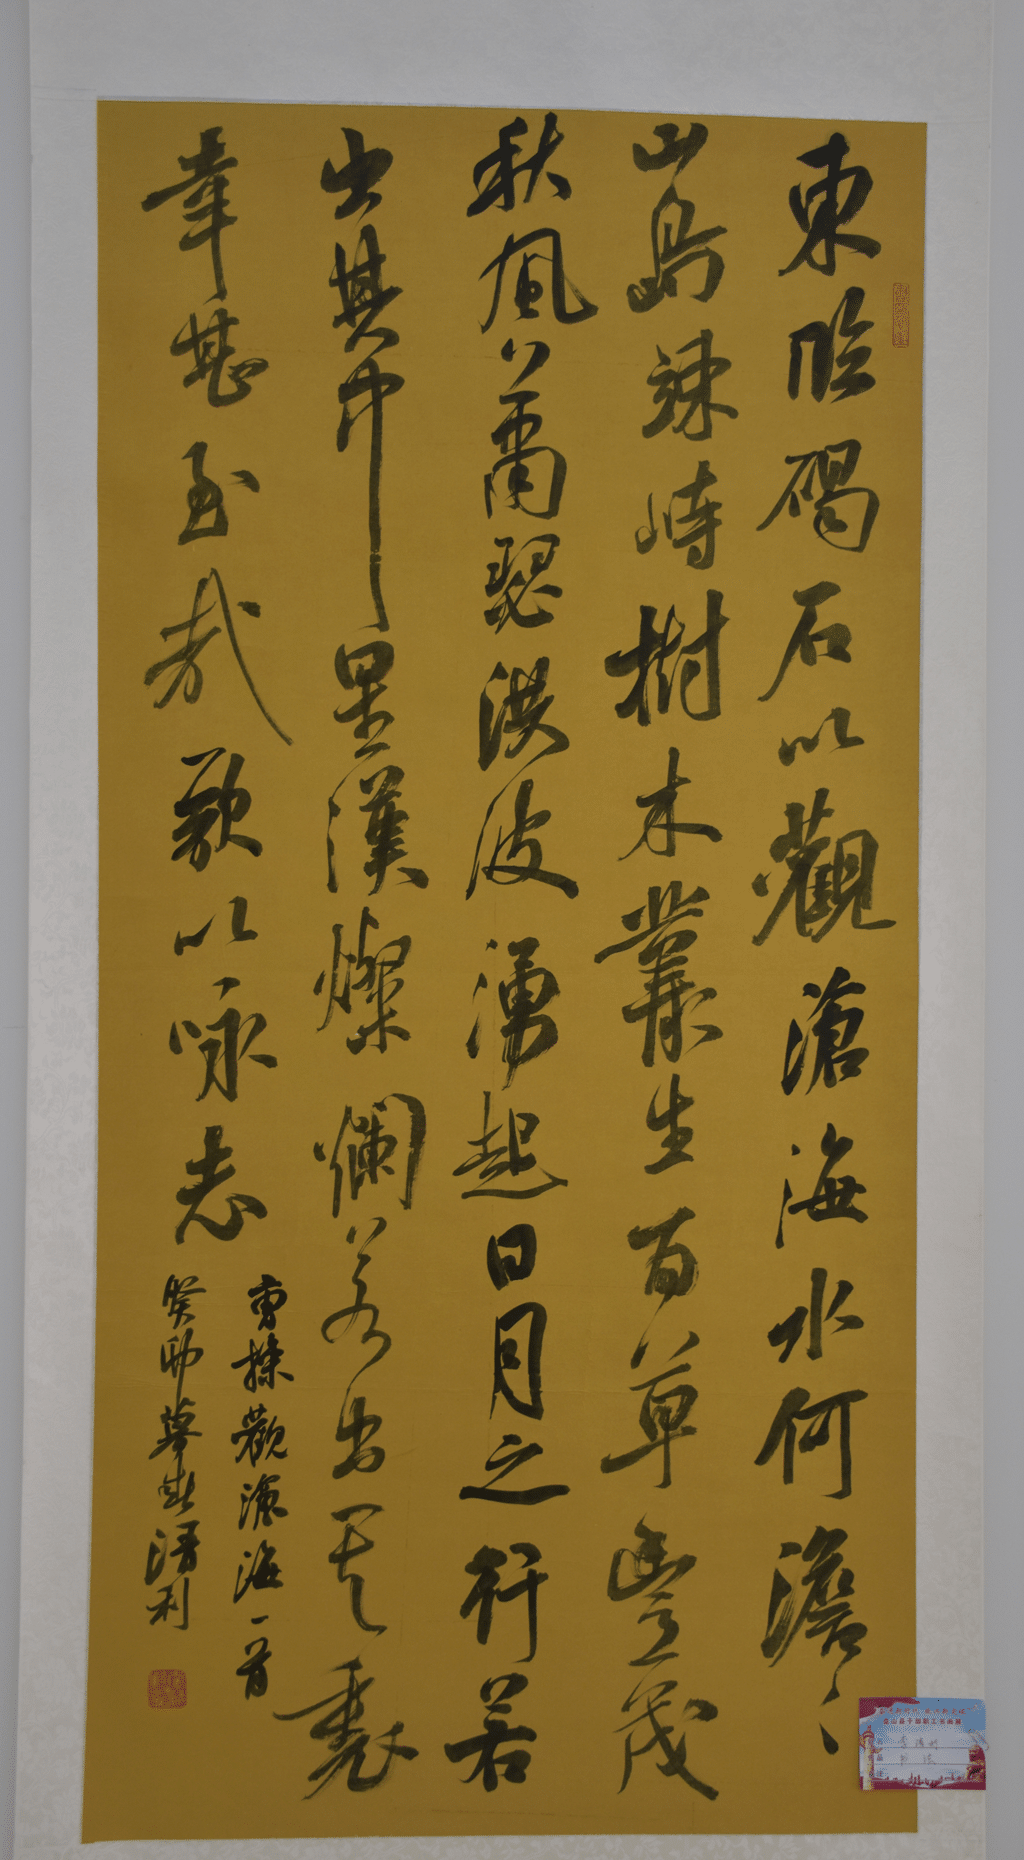 東臨碣石以觀滄海水何澹〻
山島竦峙樹木叢生百草豐茂
秋風蕭瑟洪波湧起日月之行若
出其中星漢燦爛若出其裏
幸甚至哉歌以咏志
曹操觀滄海一首
癸卯暮春清利